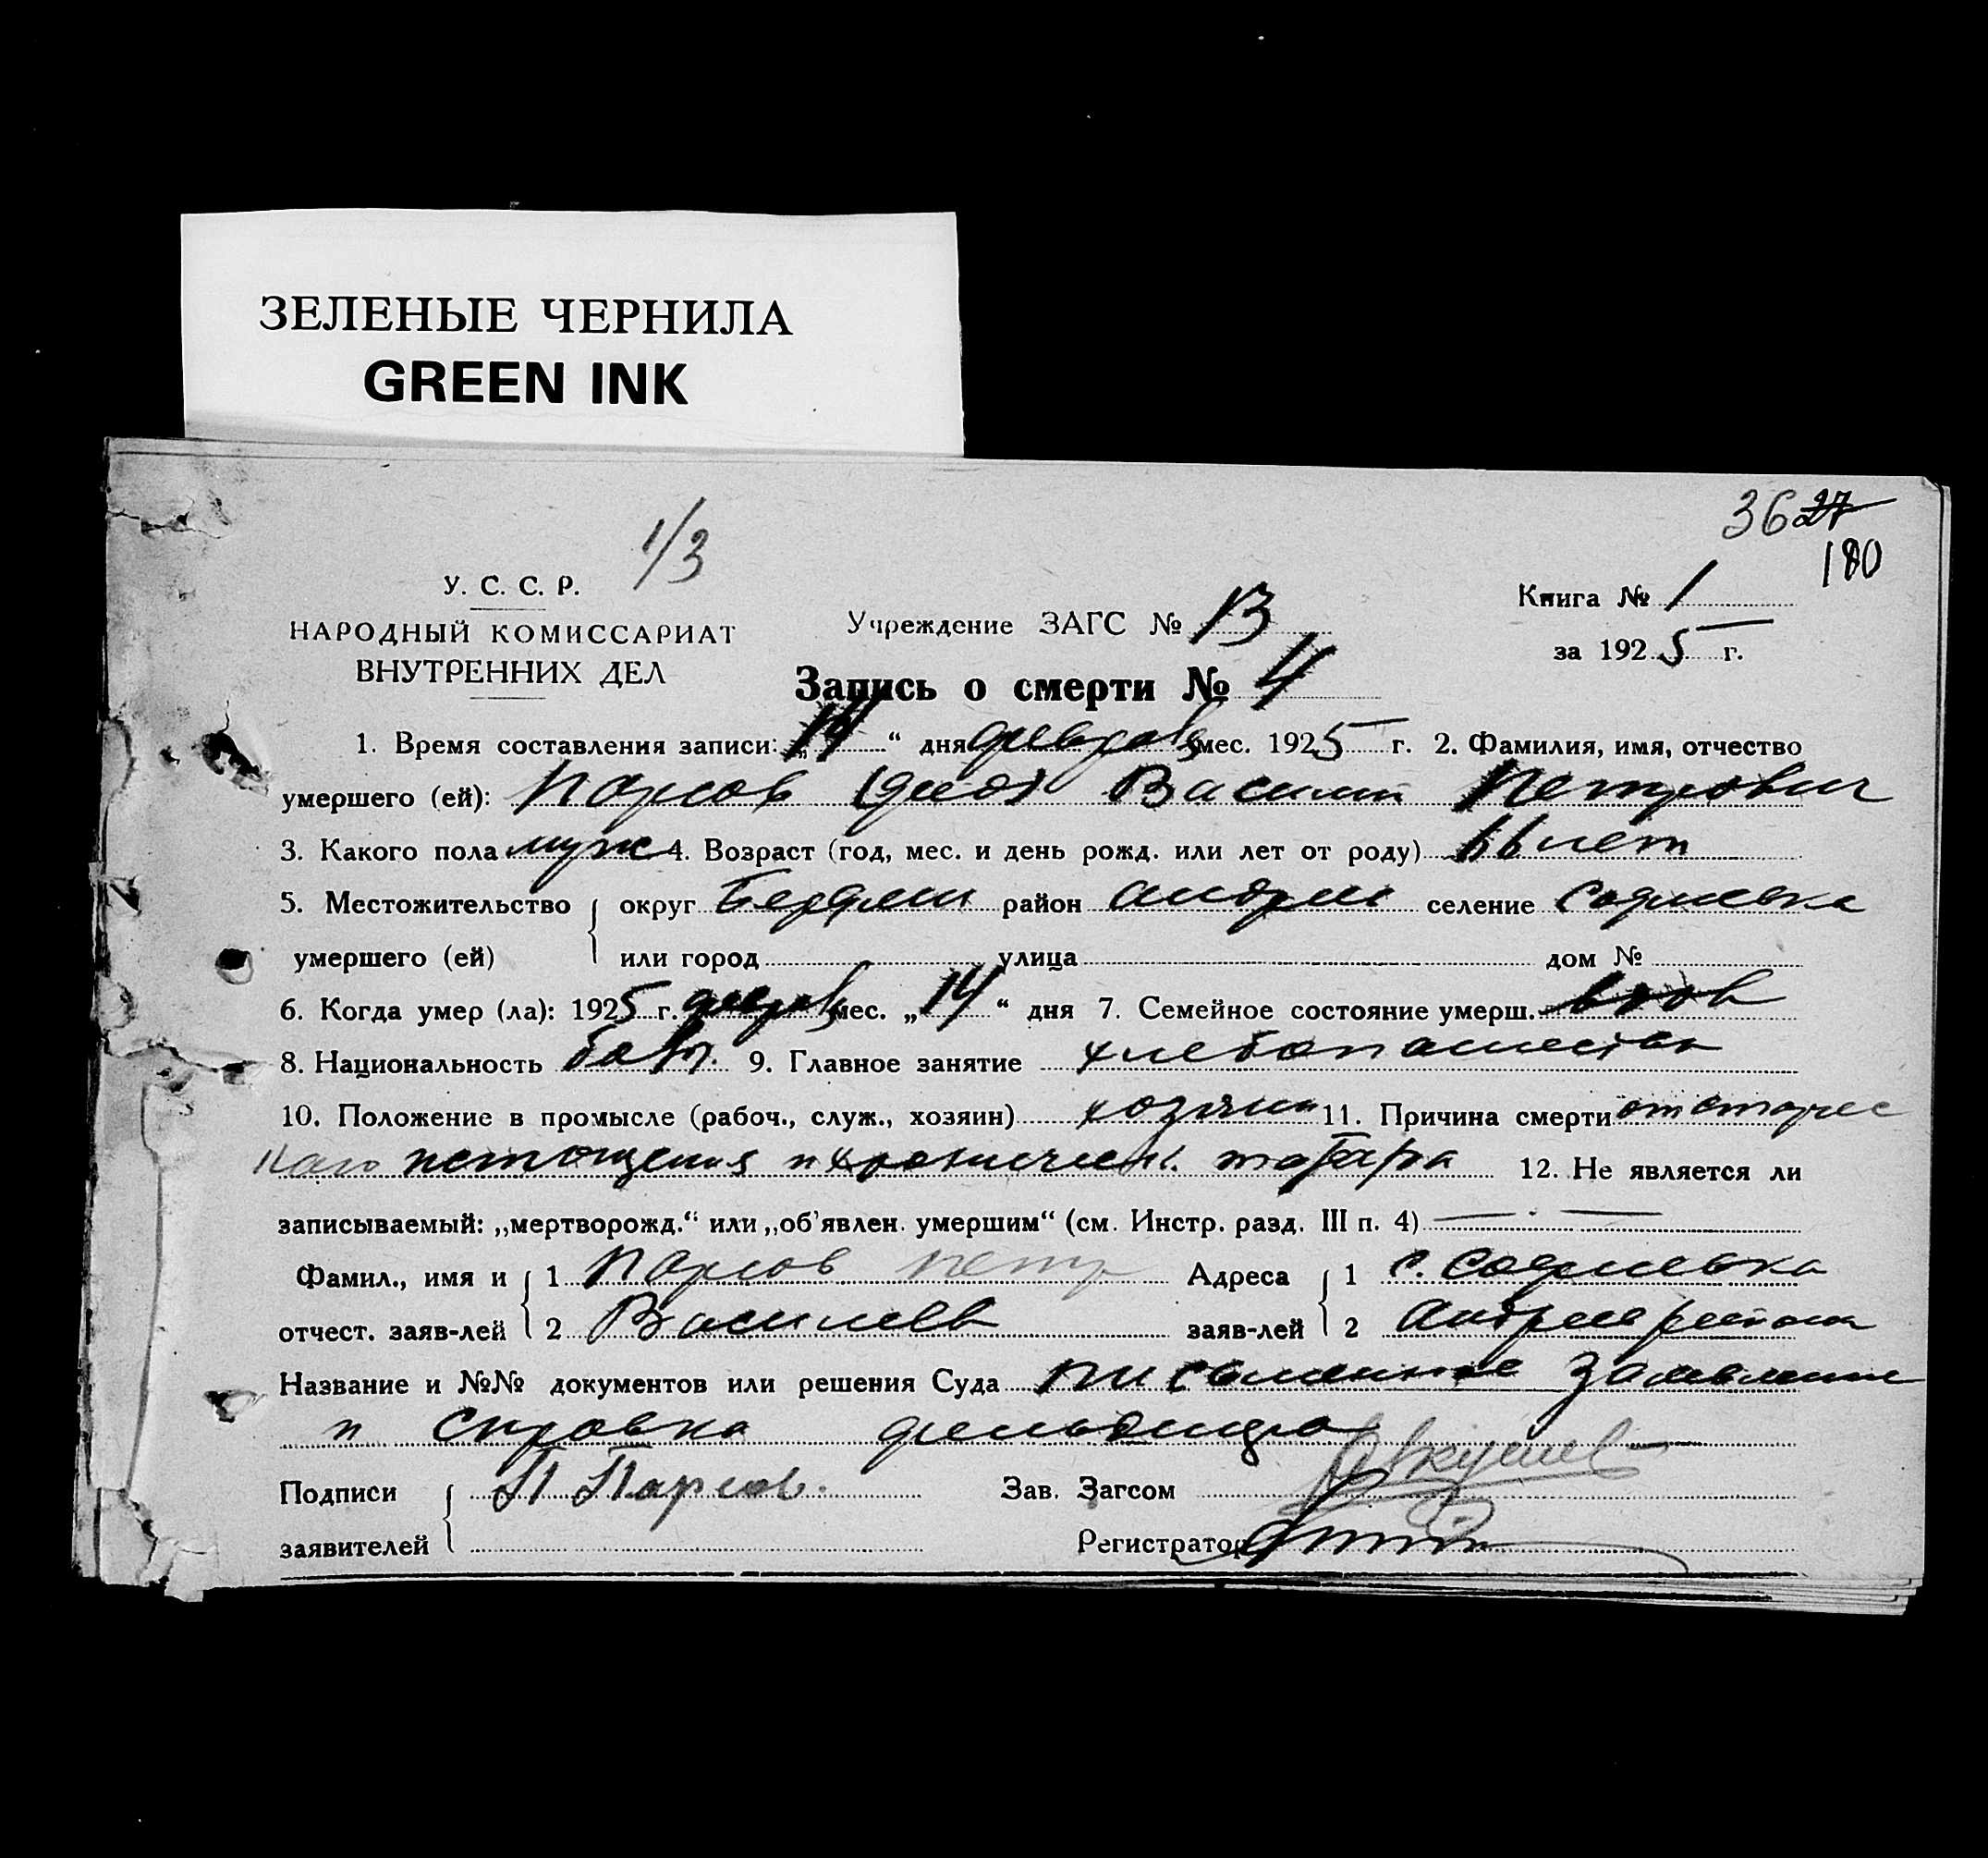 ЗЕЛЕНЫЕ ЧЕРНИЛА
GREEN INK
36 27
180
1/3
У. С. С. Р.
НАРОДНЫЙ КОМИССАРИАТ
ВНУТРЕННИХ ДЕЛ
Учреждение ЗАГС № 13
Книга № 1
за 1925 г.
Запись о смерти № 4
1. Время составления записи: „14“ дня мес. 1925 г. 2. Фамилия, имя, отчество
умершего (ей): Парсов Василий Петрович
3. Какого пола муж 4. Возраст (год, мес. и день рожд. или лет от роду) лет
5. Местожительство округ Бердян район Андрее селение Софиевка
умершего (ей) или город улица дом №
6. Когда умер (ла): 1925 г. мес. „14“ дня 7. Семейное состояние умерш. вдов
8. Национальность болг. 9. Главное занятие хлебопашество
10. Положение в промысле (рабоч., служ., хозяин) хозяин 11. Причина смерти от старчес
каго истощения и хроническ.
12. Не является ли
записываемый: „мертворожд.“ или „об'явлен. умершим“ (см. Инстр. разд. III п. 4) —
Фамил., имя и 1 Парсов Петр Адреса 1 с. Софиевка
отчест. заяв-лей 2 Василев заяв-лей 2 Андреев района
Название и №№ документов или решения Суда письменное заявление
и справка фельдшера
Подписи П Парсов. Зав. Загсом
заявителей Регистратор